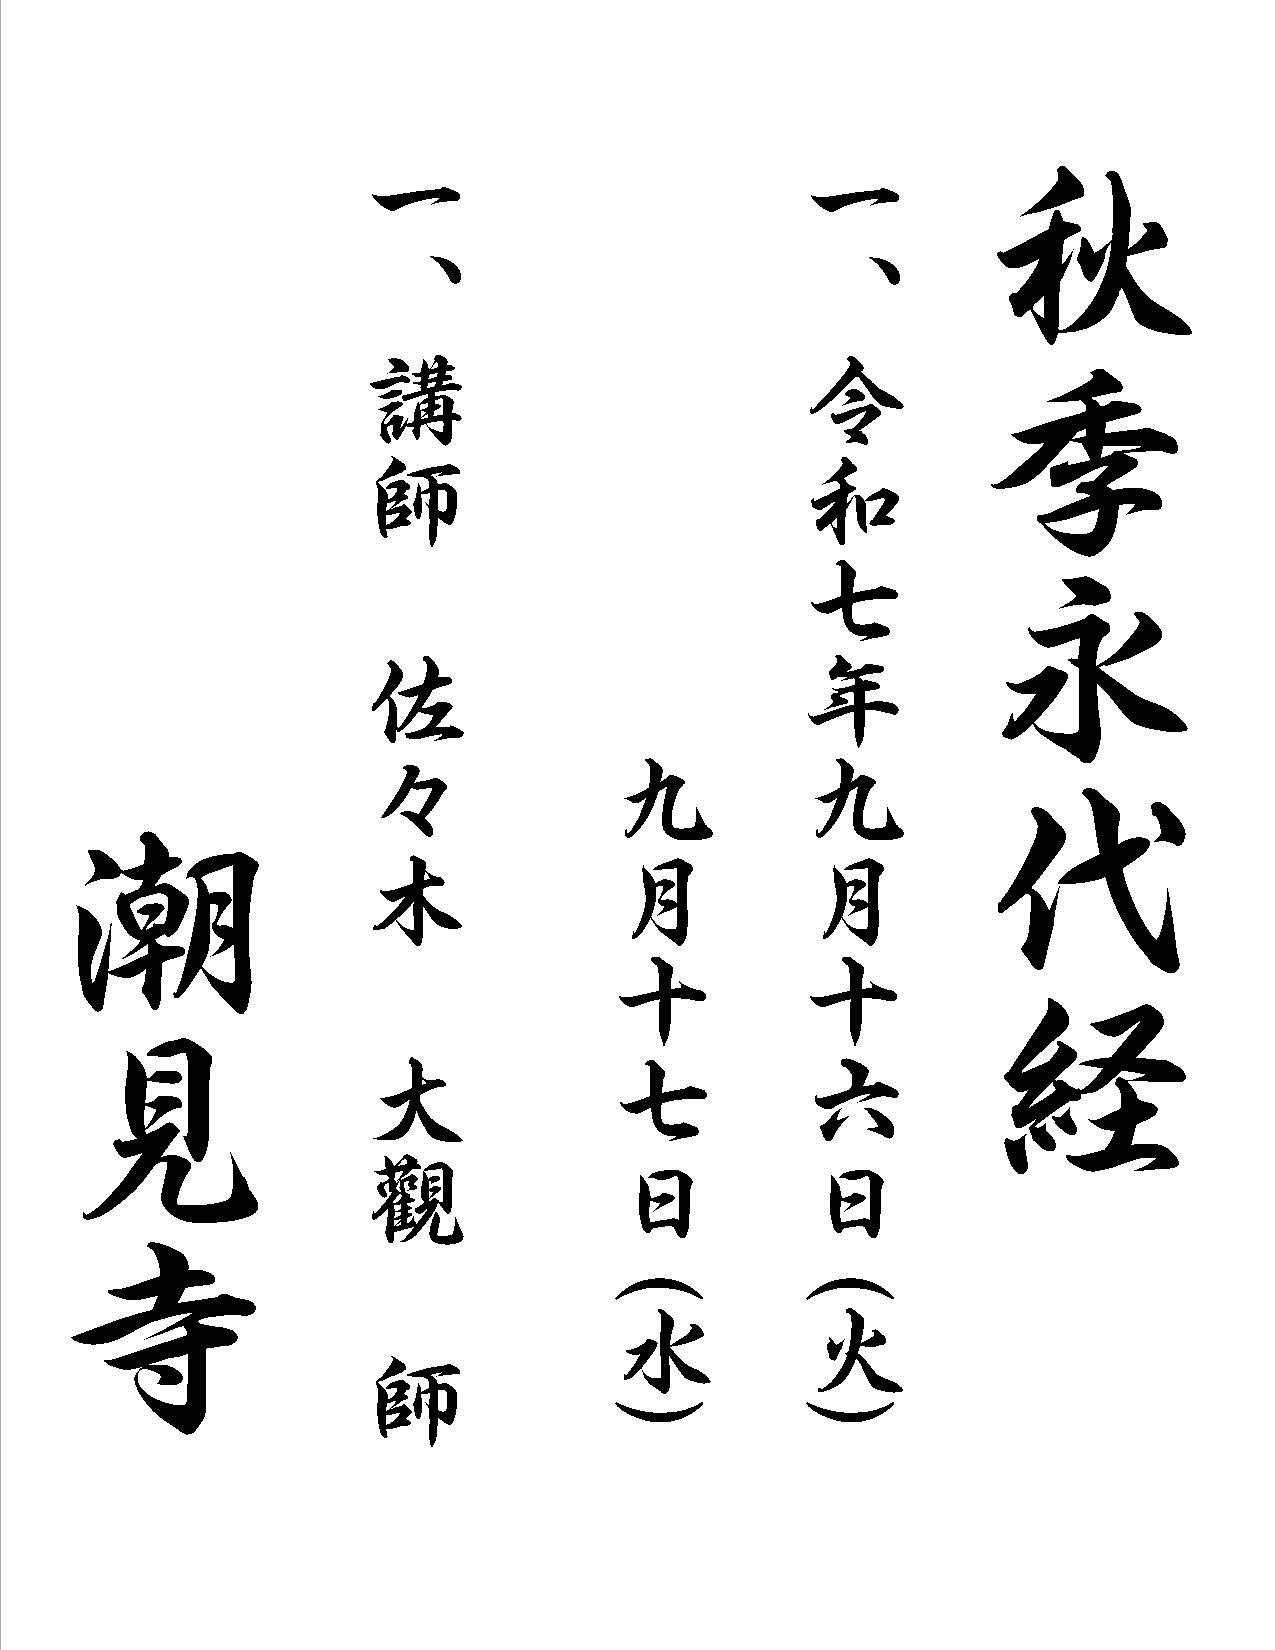 秋季永代経
一、令和七年九月十六日(火)
九月十七日(水)
一、講師　佐々木　大觀　師
潮見寺